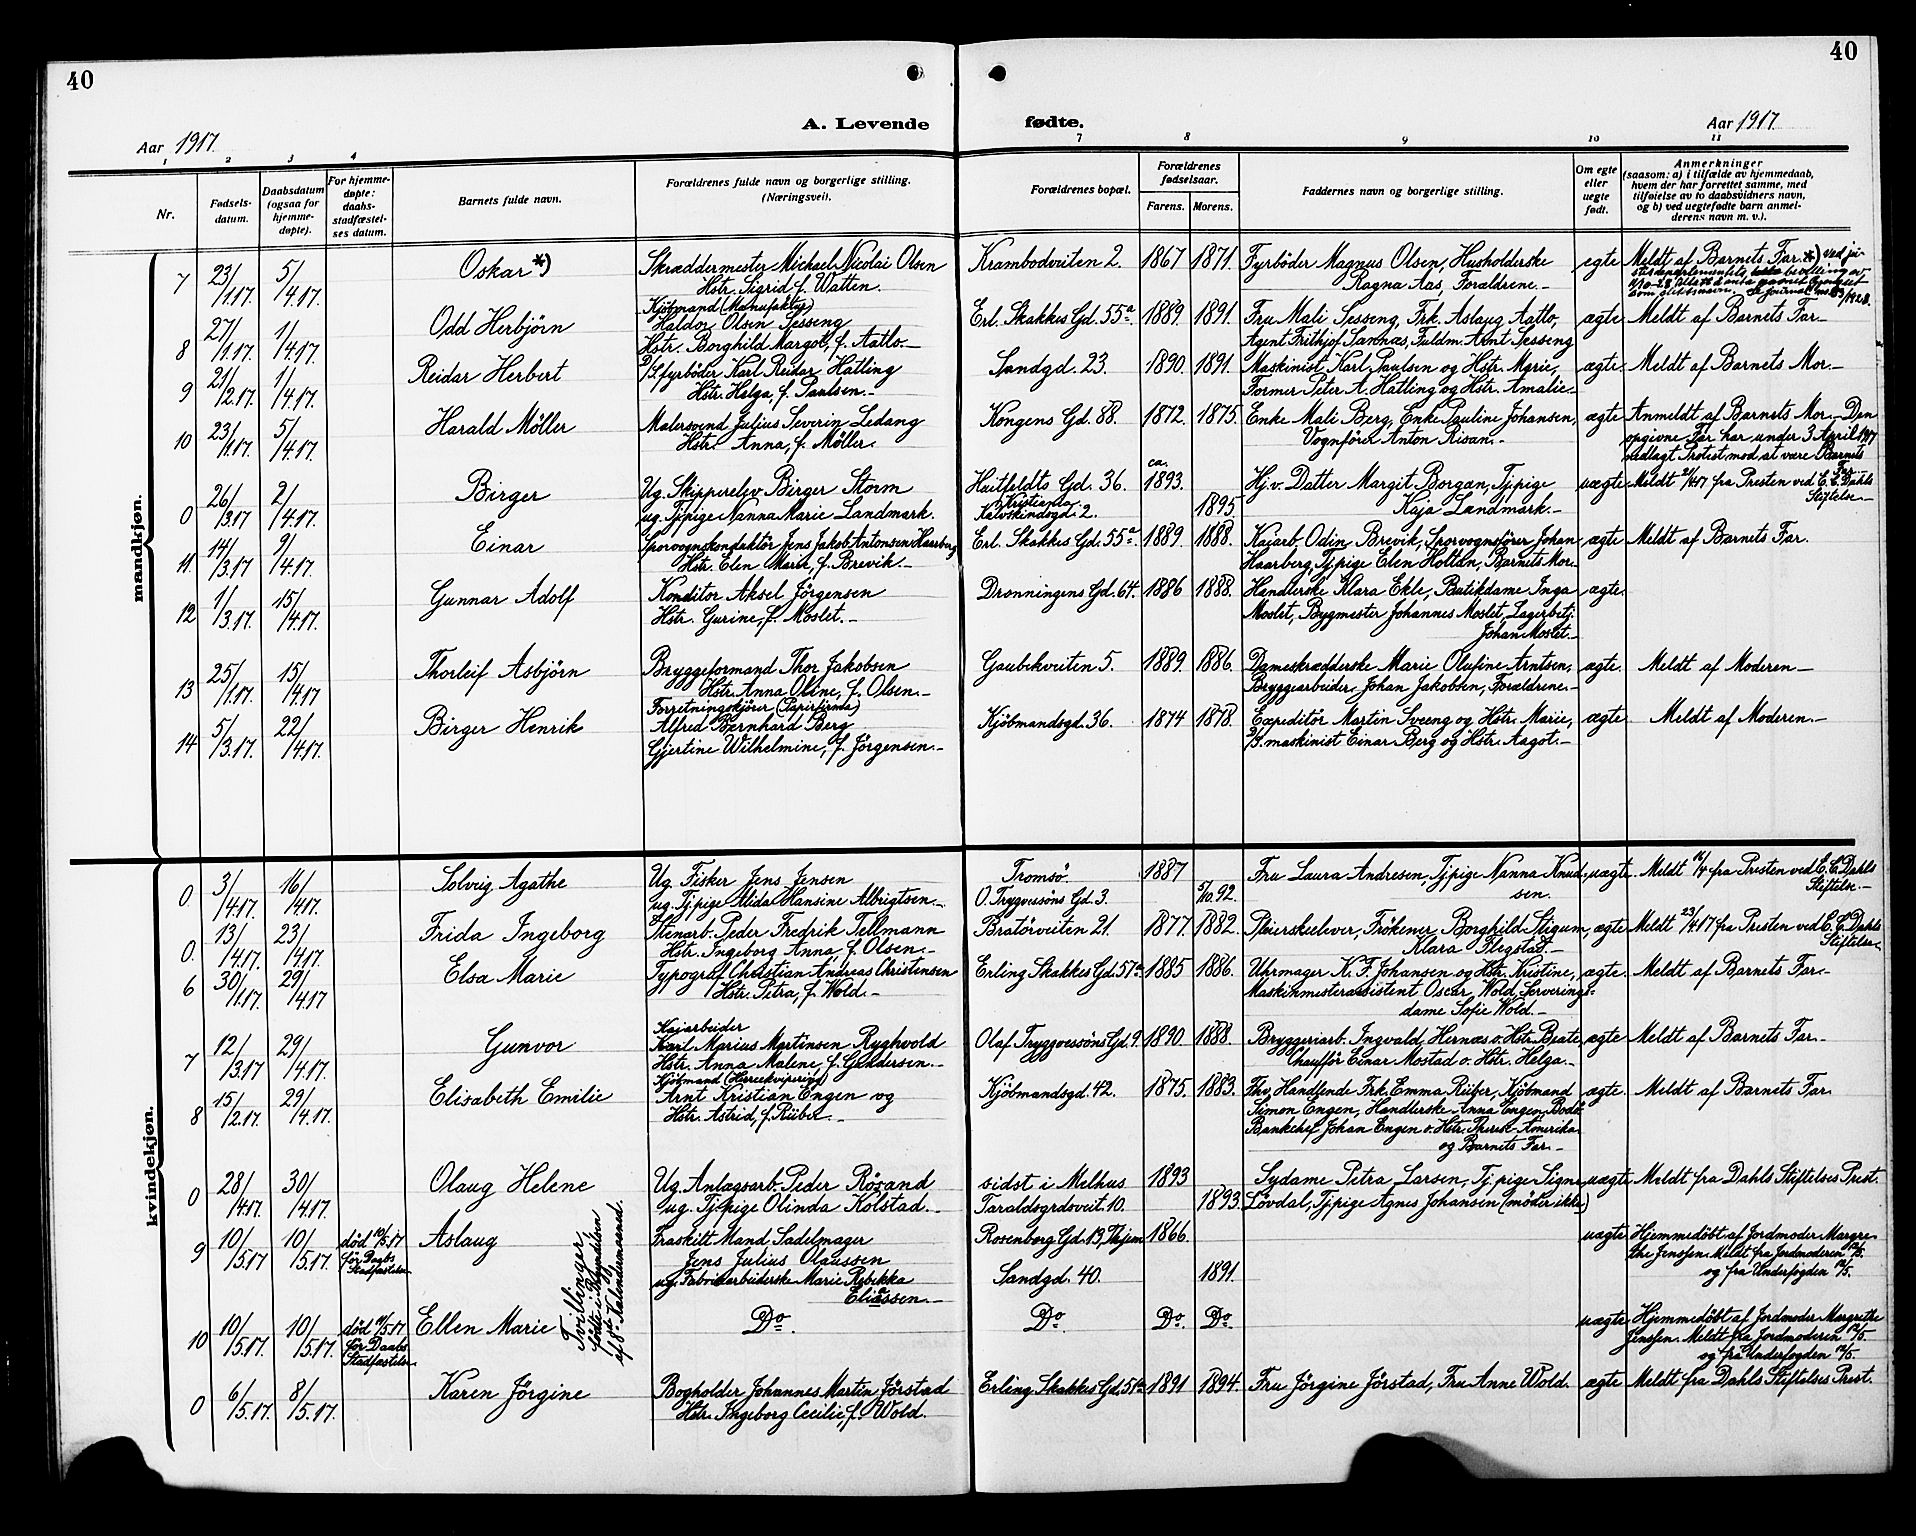 40
40
A. Levende fødte.
Aar 1917.
Aar 1917
1 2 3 4 7 8 9 10 11
Nr.
Fødsels-datum.
Daabsdatum (ogsaa for hjemme-døpte).
For hjemme-døpte: daabs-stadfæstel-ses datum.
Barnets fulde navn.
Forældrenes fulde navn og borgerlige stilling. (Næringsvei).
Forældrenes bopæl.
Forældrenes fødselsaar.
Farens. Morens.
Faddernes navn og borgerlige stilling.
Om egte eller uegte født.
Anmerkninger
(saasom: a) i tilfælde av hjemmedaab,
hvem der har forrettet samme, med
tilføielse av to daabsvidners navn,
og b) ved uegtefødte barn anmel-
derens navn m. v.).
mandkjøn.
7 23/1.17. 5/4.17. Oskar *) Skræddermester Michael Nicolai Olsen Krambodveiten 2. 1867 1871. Fyrbøder Magnus Olsen, Husholderske egte Meldt af Barnets Far *) ved ju-
Hstr. Sigrid f. Watten. Ragna Aas, Forældrene.-
8 27/1.17. 1/4.17. Odd Herbjörn Kjöbmand (Manufaktur)
Haldor Olsen Sesseng Erl. Skakkes Gd. 55a 1889. 1891. Fru Mali Sesseng, Frk. Aslaug Aatlo, ægte Meldt af Barnets Far-
Hstr. Borghild Margot, f. Aatlo.- Agent Frithjof Sannæs, Fuldm. Arnt Sesseng
9 21/2.17. 1/4.17. Reidar Herbert D/S. fyrbøder Karl Reidar Hatling Sandgd. 23. 1890. 1891. Maskinist Karl Paulsen og Hstr. Marie, ægte. Meldt af Barnets Mor.-
Hstr. Helga, f. Paulsen.- Former Peter A. Hatling og Hstr. Amalie.-
10 23/1.17. 5/4.17. Harald Möller Malersvend Julius Severin Ledang Kongens Gd. 88. 1872. 1875. Enke Mali Berg, Enke Pauline Johansen, ægte. Anmeldt af Barnets Mor.- Den
Hstr. Anna, f. Möller. Vognfører Anton Risan.- opgivne Far har under 3 April 1917
nedlagt Protest mod at være Barnets
Far-
0 26/3.17 2/4.17. Birger Ug. Skipperelev Birger Storm Huitfeldts Gd. 36. Kristiania ca. 1893. Hj.v. Datter Margit Borgan, Tjpige uægte Meldt 21/4.17 fra Presten ved E. C. Dahls
ug. Tjpige Nanna Marie Landmark. Kalvskindsgd. 2. 1895. Kaja Landmark.- Stiftelse.-
11. 14/3.17 9/4.17. Einar Sporvognskonduktör Jens Jakob Antonsen Haarberg Erl. Skakkes Gd. 55a 1889. 1888. Kaiarb. Odin Brevik, Sporvognsfører Johan ægte Meldt af Barnets Far.
Hstr. Elen Marie, f. Brevik.- Haarberg, Tjpige Elen Holtan, Barnets Mor.
12 1/3.17. 15/4.17. Gunnar Adolf Konditor Aksel Jörgensen Dronningens Gd. 64. 1886 1888. Handlerske Klara Ekle, Butikdame Inga ægte.
Hstr. Gurine, f. Moslet.- Moslet, Bygmester Johannes Moslet, Lagerbetj.
Johan Moslet.-
13 25/1.17. 15/4.17 Thorleif Asbjörn Bryggeformand Thor Jakobsen Gaubekveiten 5. 1889. 1886. Dameskrædderske Marie Olufine Arntsen, ægte. Meldt af Moderen-
Hstr. Anna Oline, f. Olsen.- Bryggearbeider Johan Jakobsen, Forældrene.-
14 5/3.17. 22/4.17. Birger Henrik Forretningskjörer (Papirfirma)
Alfred Bernhard Berg Kjöbmandsgd. 36. 1874 1878. Expeditör Martin Sveeng og Hstr. Marie, ægte. Meldt af Moderen.-
Gjertine Wilhelmine, f. Jörgensen.- D/S. maskinist Einar Berg og Hstr. Aagot.-
kvindekjøn.
0 3/4.17. 16/4.17. Solvig Agathe Ug. Fisker Jens Jensen Tromsö. 1887 Fru Laura Andresen, Tjpige Nanna Knud- uægte. Meldt 16/4 fra Presten ved E. C. Dahls
ug. Tjpige Alida Hansine Albrigtsen.- O. Trygvesöns Gd. 3. 5/10.92. sen. Stiftelse.-
0. 13/4.17. 23/4.17 Frida Ingeborg Stenarb. Peder Fredrik Tellmann Bratörveiten 21. 1877. 1882. Pleierskelever, Frökener Borghild Stigum, ægte Meldt 23/4.17 fra Presten ved E. C. Dahls
Hstr. Ingeborg Anna, f. Olsen.- Klara Flegstad.- Stiftelse.
6 30/1.17. 29/4.17 Elsa Marie Typograf Christian Andreas Christensen Erling Skakkes Gd. 57a 1885 1886. Uhrmager K. F. Johansen og Hstr. Kristine, ægte. Meldt af Barnets Far.-
Hstr. Petra, f. Wold.- Maskinmesterassistent Oscar Wold, Serverings-
dame Sofie Wold.-
7 12/3.17 29/4.17. Gunvor Kaiarbeider
Karl Marius Martinsen Ryghvold Olaf Tryggvessöns Gd. 9. 1890 1888. Bryggeriarb. Ingvald Hernæs o. Hstr. Beate ægte Meldt af Barnets Far.-
Hstr. Anna Malene, f. Gundersen.- Chaufför Einar Mostad o. Hstr. Helga.-
8 15/2.17. 29/4.17. Elisabeth Emilie Kjöbmand (Herreekvipering)
Arnt Kristian Engen og Kjöbmandsgd. 42. 1875. 1883. Fhv. Handlende Frk. Emma Rüber, Kjöbmand ægte. Meldt af Barnets Far.
Hstr. Astrid, f. Rüber.- Simon Engen, Handlerske Anna Engen Bodö.
Bankchef Johan Engen o. Hstr. Therese-Amerika
og Barnets Far.-
0 28/4.17 30/4.17. Olaug Helene Ug. Anlægsarb. Peder Rösand sidst i Melhus 1893 Sydame Petra Larsen, Tj.pige Signe uægte Meldt fra Dahls Stiftelses Prest.
ug. Tj.pige Olinda Kolstad.- Taraldsgrdsveit. 10. 1893. Lövdal, Tjpige Agnes Johansen (möder ikke)
9 10/5.17 10/5.17. død 10/5.17 för Daabs Stadfæstelse Aslaug Fraskilt Mand Sadelmager Rosenborg Gd. 19, Thjem 1866. uægte Hjemmedöbt af Jordmoder Margre-
Jens Julius Olaussen the Jenssen. Meldt fra Jordmoderen 12/5.
ug. Fabrikarbeiderske Marie Rebekka Sandgd. 40. 1891. og fra Underfogden 12/5.
Eliassen.-
Tvillinger,
födte i Begyndelsen
af 8de Kalendermaaned.
10 10/5.17. 10/5.17. død 11/5.17 för Daabs Stadfæstelse Ellen Marie Do. Do. Do. Do. uægte Hjemmedöbt af Jordmoder Margrethe
Jenssen. Meldt fra Jordmoderen 12/5.
og fra Underfogden 12/5.
0 6/5.17. 8/5.17. Karen Jörgine Bogholder Johannes Martin Jörstad Erling Skakkes Gd. 51a 1891 1894. Fru Jörgine Jörstad, Fru Anne Wold. ægte Meldt fra Dahls Stiftelses Prest.
Hstr. Ingeborg Cecilie, f. Wold.